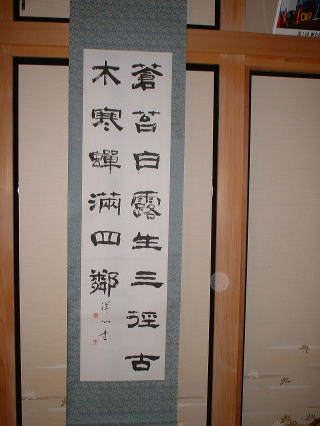 蒼苔白露生三徑古
木寒蟬滿四鄰